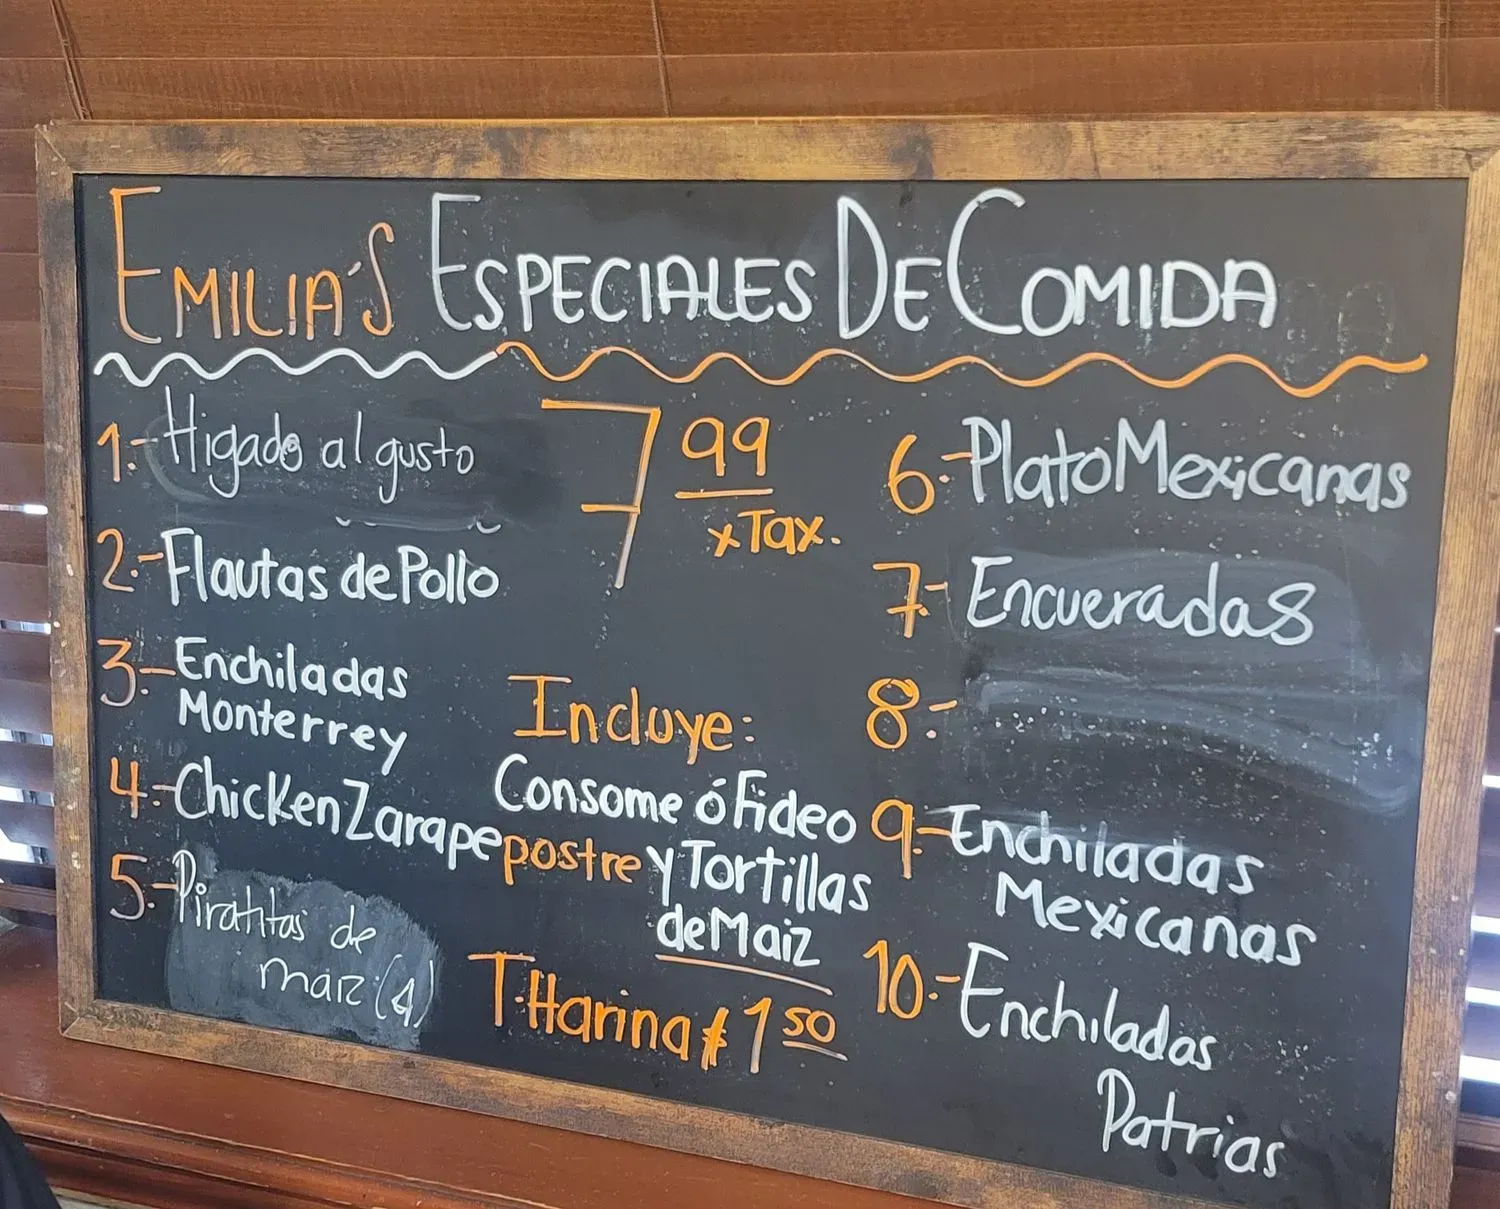 EMILIA'S ESPECIALES DE COMIDA
1.- Higado al gusto
2.- Flautas de Pollo
3.- Enchiladas
Monterrey
4.- Chicken Zarape
5.- Piratitas de
maiz (4)
7 99
x Tax.
Incluye:
Consome ó Fideo
postre y Tortillas
de Maiz
T. Harina $1 50
6.- Plato Mexicanas
7.- Encueradas
8.-
9.- Enchiladas
Mexicanas
10.- Enchiladas
Patrias